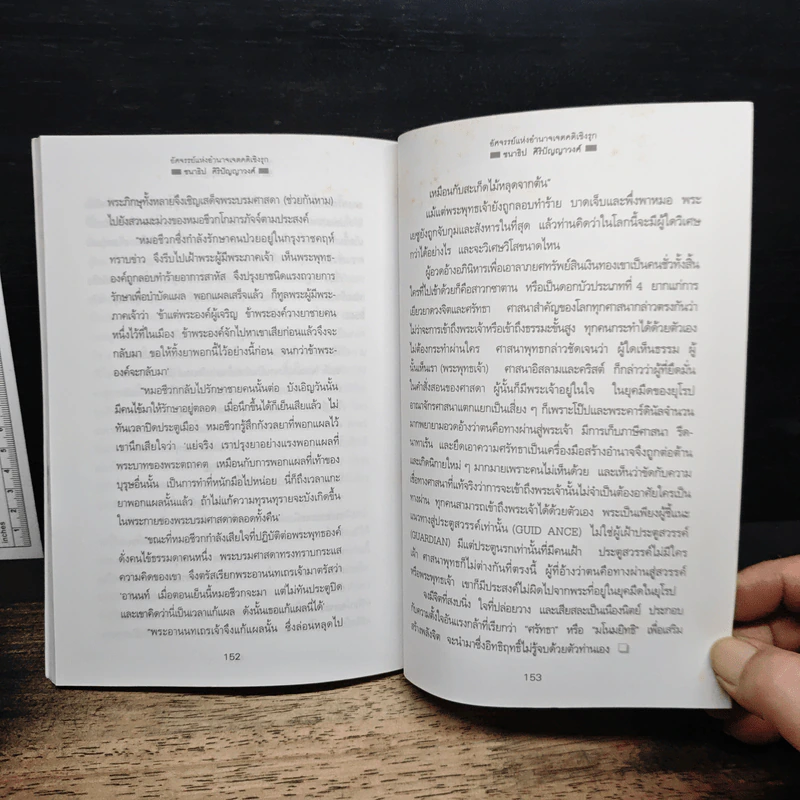 อัศจรรย์แห่งอำนาจเจตคติเชิงรุก
ชนาธิป ศิริปัญญาวงศ์
พระภิกษุทั้งหลายจึงเชิญเสด็จพระบรมศาสดา (ช่วยกันหาม)
ไปยังสวนมะม่วงของหมอชีวกโกมารภัจจ์ตามประสงค์
"หมอชีวกซึ่งกำลังรักษาคนป่วยอยู่ในกรุงราชคฤห์
ทราบข่าว จึงรีบไปเฝ้าพระผู้มีพระภาคเจ้า เห็นพระพุทธ-
องค์ถูกลอบทำร้ายอาการสาหัส จึงปรุงยาชนิดแรงถวายการ
รักษาเพื่อบำบัดแผล พอกแผลเสร็จแล้ว ก็ทูลพระผู้มีพระ-
ภาคเจ้าว่า 'ข้าแต่พระองค์ผู้เจริญ ข้าพระองค์วางยาชายคน
หนึ่งไว้ที่ในเมือง ข้าพระองค์จักไปหาเขาเสียก่อนแล้วจึงจะ
กลับมา ขอให้ทิ้งยาพอกนี้ไว้อย่างนี้ก่อน จนกว่าข้าพระ-
องค์จะกลับมา'
"หมอชีวกกลับไปรักษาชายคนนั้นต่อ บังเอิญวันนั้น
มีคนไข้มาให้รักษาอยู่ตลอด เมื่อนึกขึ้นได้ก็เย็นเสียแล้ว ไม่
ทันเวลาปิดประตูเมือง หมอชีวกรู้สึกกังวลยาที่พอกแผลไว้
เขานึกเสียใจว่า 'แย่จริง เราปรุงยาอย่างแรงพอกแผลที่
พระบาทของพระตถาคต เหมือนกับการพอกแผลที่เท้าของ
บุรุษอื่นนั้น เป็นการทำที่หนักมือไปหน่อย นี่ก็ถึงเวลาแกะ
ยาพอกแผลนั้นแล้ว ถ้าไม่แก้ความทุรนทุรายจะบังเกิดขึ้น
ในพระกายของพระบรมศาสดาตลอดทั้งคืน'
"ขณะที่หมอชีวกกำลังเสียใจที่ปฏิบัติต่อพระพุทธองค์
ดั่งคนไข้ธรรมดาคนหนึ่ง พระบรมศาสดาทรงทราบกระแส
ความคิดของเขา จึงตรัสเรียกพระอานนทเถรเจ้ามาตรัสว่า
'อานนท์ เมื่อตอนเย็นนี้หมอชีวกจะมา แต่ไม่ทันประตูปิด
และเขาคิดว่านี่เป็นเวลาแก้แผล ดังนั้นขอแก้แผลนี้ได้'
"พระอานนทเถรเจ้าจึงแก้แผลนั้น ซึ่งล่อนหลุดไป
152
อัศจรรย์แห่งอำนาจเจตคติเชิงรุก
ชนาธิป ศิริปัญญาวงศ์
เหมือนกับสะเก็ดไม้หลุดจากต้น"
แม้แต่พระพุทธเจ้ายังถูกลอบทำร้าย บาดเจ็บและพึ่งพาหมอ พระ
เยซูยังถูกจับกุมและสังหารในที่สุด แล้วท่านคิดว่าในโลกนี้จะมีผู้ใดวิเศษ
กว่าได้อย่างไร และจะวิเศษวิโสขนาดไหน
ผู้อวดอ้างอภินิหารเพื่อเอาลาภยศทรัพย์สินเงินทองเขาเป็นคนชั่วทั้งสิ้น
ใครที่ไปเข้าด้วยก็คือสาวกซาตาน หรือเป็นดอกบัวประเภทที่ 4 ยากแก่การ
เยียวยาดวงจิตและศรัทธา ศาสนาสำคัญของโลกทุกศาสนากล่าวตรงกันว่า
ไม่ว่าจะการเข้าถึงพระเจ้าหรือเข้าถึงธรรมะขั้นสูง ทุกคนกระทำได้ด้วยตัวเอง
ไม่ต้องกระทำผ่านใคร ศาสนาพุทธกล่าวชัดเจนว่า ผู้ใดเห็นธรรม ผู้
นั้นเห็นเรา (พระพุทธเจ้า) ศาสนาอิสลามและคริสต์ ก็กล่าวว่าผู้ที่ยึดมั่น
ในคำสั่งสอนของศาสดา ผู้นั้นก็มีพระเจ้าอยู่ในใจ ในยุคมืดของยุโรป
อาณาจักรศาสนาแตกแยกเป็นเสี่ยง ๆ ก็เพราะโป๊ปและพระคาร์ดินัลจำนวน
มากพยายามอวดอ้างว่าตนคือทางผ่านสู่พระเจ้า มีการเก็บภาษีศาสนา รีด-
นาทาเร้น และยึดเอาความศรัทธาเป็นเครื่องมือสร้างอำนาจจึงถูกต่อต้าน
และเกิดนิกายใหม่ ๆ มากมายเพราะคนไม่เห็นด้วย และเห็นว่าขัดกับความ
สื่อทางศาสนาที่แท้จริงว่าการจะเข้าถึงพระเจ้านั้นไม่จำเป็นต้องอาศัยใครเป็น
ทางผ่าน ทุกคนสามารถเข้าถึงพระเจ้าได้ด้วยตัวเอง พระเป็นเพียงผู้ชี้แนะ
แนวทางสู่ประตูสวรรค์เท่านั้น (GUID ANCE) ไม่ใช่ผู้เฝ้าประตูสวรรค์
(GUARDIAN) มีแต่ประตูนรกเท่านั้นที่มีคนเฝ้า ประตูสวรรค์ไม่มีใคร
เฝ้า ศาสนาพุทธก็ไม่ต่างกันที่ตรงนี้ ผู้ที่อ้างว่าตนคือทางผ่านสู่สวรรค์
หรือพระพุทธเจ้า เขาก็มีประสงค์ไม่ผิดไปจากพระที่อยู่ในยุคมืดในยุโรป
จงมีจิตที่สงบนิ่ง ใจที่ปล่อยวาง และเสียสละเป็นเนืองนิตย์ ประกอบ
กับความตั้งใจอันแรงกล้าที่เรียกว่า "ศรัทธา" หรือ "มโนมยิทธิ" เพื่อเสริม
สร้างพลังจิต จะนำมาซึ่งอิทธิฤทธิ์ไม่รู้จบด้วยตัวท่านเอง
153
inches
1
2
3
4
5